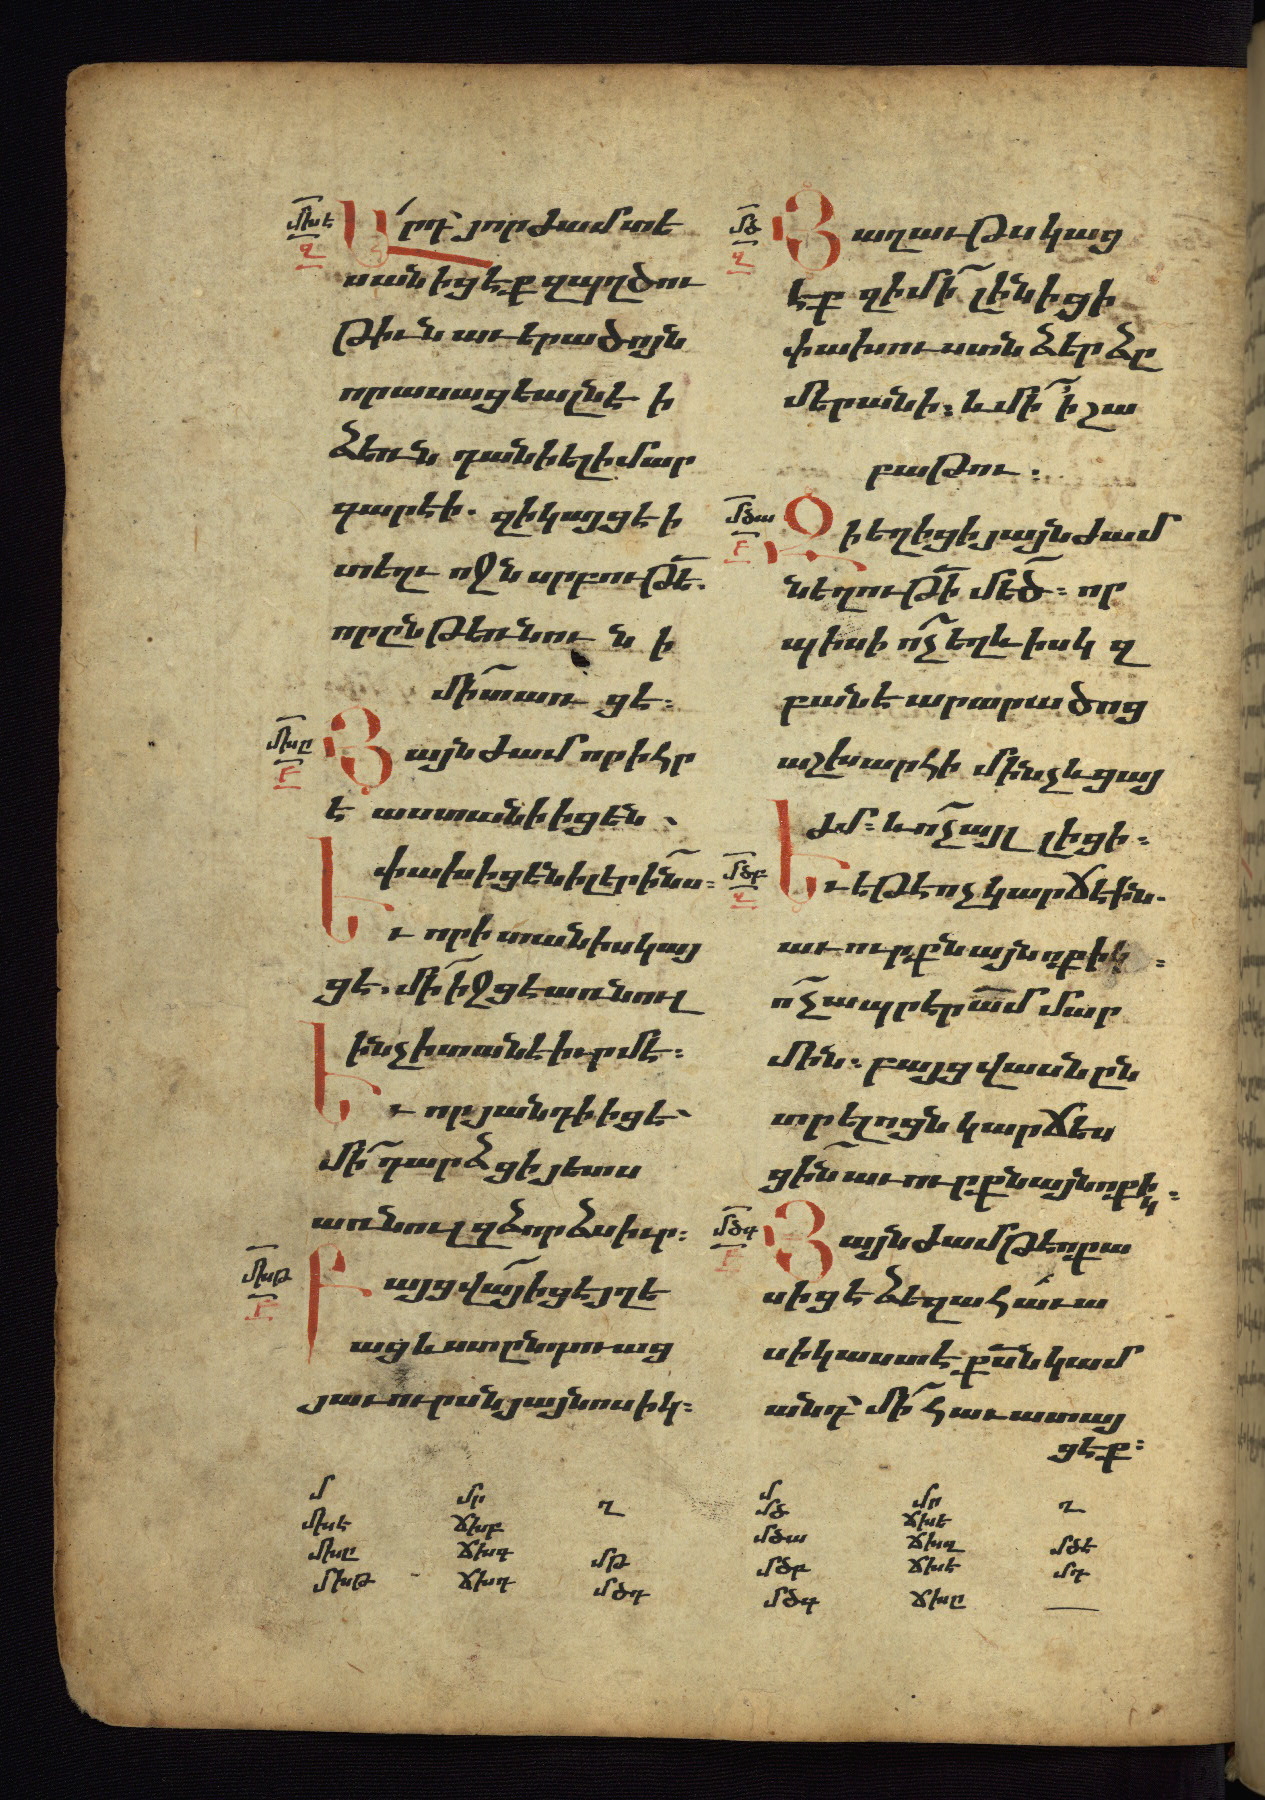 մխէ
զ
Ա՛րդ՝ յորժամ տե
սանիցէք զպղծու
թիւն աւերածոյն
որ ասացեալնէ ի
ձեռն դանիէլի մար
գարէի. զի կացցէ ի
տեղւոջն սրբութե̄.
որ ընթեռնուն ի
մի՜ տառցէ։
մխը
բ
Յայնժամ որ ի հր
է աստանի իցեն՝
փախիցեն ի լերինս։
Եւ որ ի տանիս կայ
ցէ. մի՜ իջցէ առնուլ
ինչ ի տանէ իւրմէ։
Եւ որ յանդի իցէ՝
մի՜ դարձցի յետս
առնուլ զձորձս իւր։
մխթ
բ
Բայց վա՜յ իցէ յղե
աց և ստընտուաց
յաւուրսն յայնոսիկ։
մծ
զ
Յաղաւթս կաց
էք զի մի՜ լինիցի
փախուստն ձեր ձը
մերանի։ և մի՜ ի շա
բաթու։
մծա
բ
Զի եղիցի յայնժամ
նեղութի̄ մեծ։ որ
պիսի ո՜չ եղև իսկ զ
բանէ արարածոց
աշխարհի մինչև ցայ
ժմ։ և ո՜չ այլ լիցի։
մծբ
զ
Եւ եթե ոչ կարճէին
աւուրքն այնոքիկ։
ո՜չ ապրէր ամ̄ մար
մին։ բայց վասն ըն
տրելոցն կարճես
ցին աւուրքն այնոքիկ։
մծգ
բ
Յայնժամ թե ոք ա
սիցէ ձեզ ահաւա
սիկ աստէ քսն կամ
անդ՝ մի՜ հաւատայ
ցէք։
մ մր ղ
մխէ ճխբ
մխը ճխգ մթ
մխթ ճխդ մծդ
մ մր ղ
մծ ճխե
մծա ճխզ մծե
մծբ ճխէ մդ
մծգ ճխը —